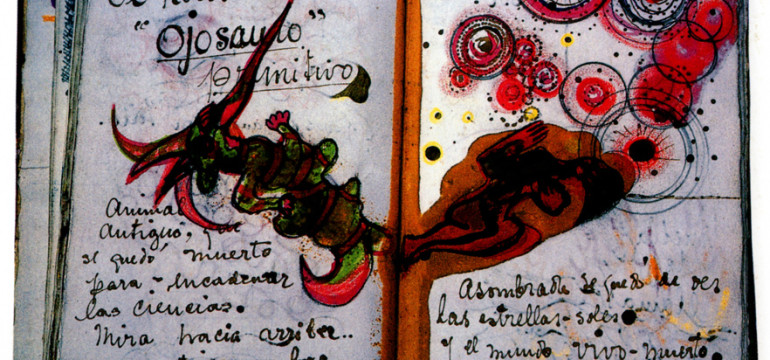 "Ojosauro"
primitivo
Animal
antiguo, que
se quedó muerto
para encadenar
las ciencias.
Mira hacia arriba..
Asombrada se quedó de ver
las estrellas-soles
y el mundo vivo-muerto